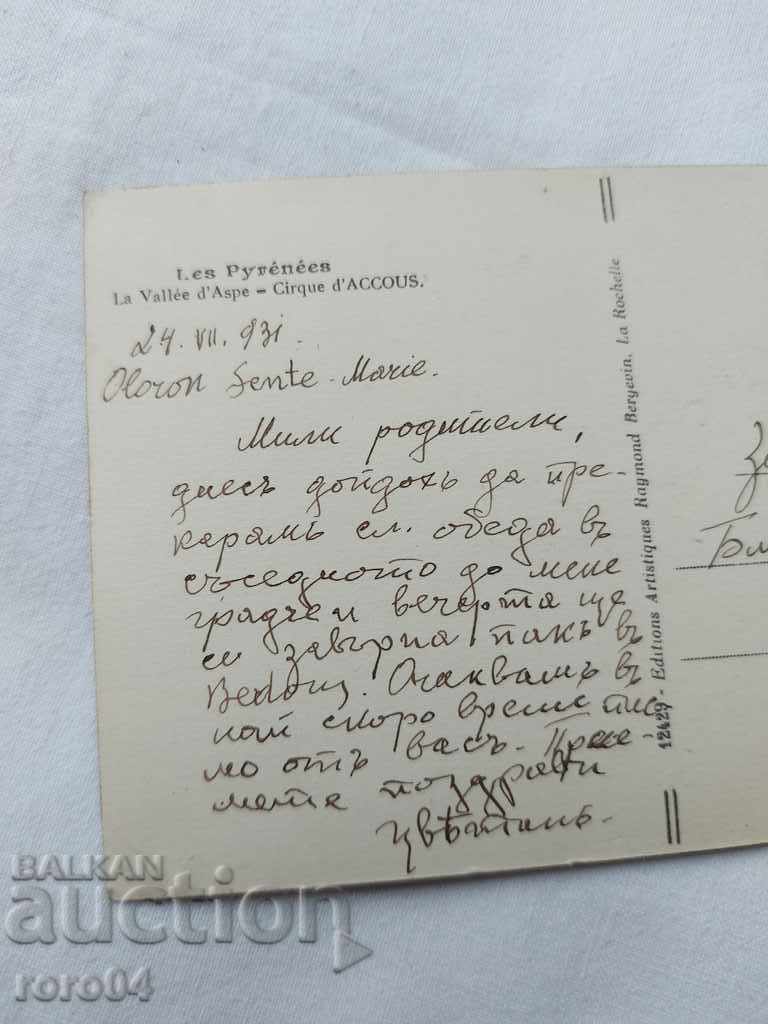 Les Pyrénées
La Vallée d'Aspe - Cirque d'ACCOUS.
24. VII. 931.
Oloron Sente-Marie.
Мили родители,
днесъ дойдохъ да пре-
карамъ сл. обеда въ
съседното до мене
градче и вечерта ще
се завърна пакъ въ
Bedous. Очаквамъ въ
най скоро време пис
мо отъ васъ. Прие-
мете поздрави
Цвѣтанъ.
12429 - Editions Artistiques Raymond Bergevin, La Rochelle
BALKAN
auction
roro04